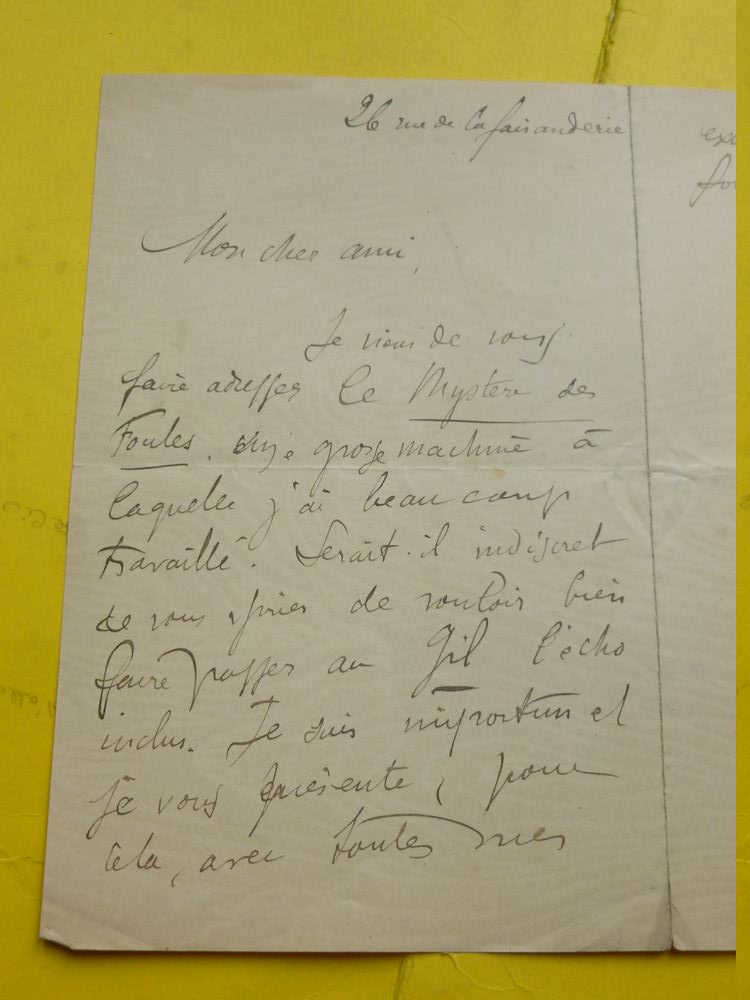 26 rue de la faisanderie
Mon cher ami,
Je viens de vous
faire adresser le Mystère des
Foules. Une grosse machine à
laquelle j'ai beaucoup
travaillé. Serait-il indiscret
de vous prier de vouloir bien
faire passer au Gil l'écho
inclus. Je suis importun et
je vous présente, pour
cela, avec toutes mes